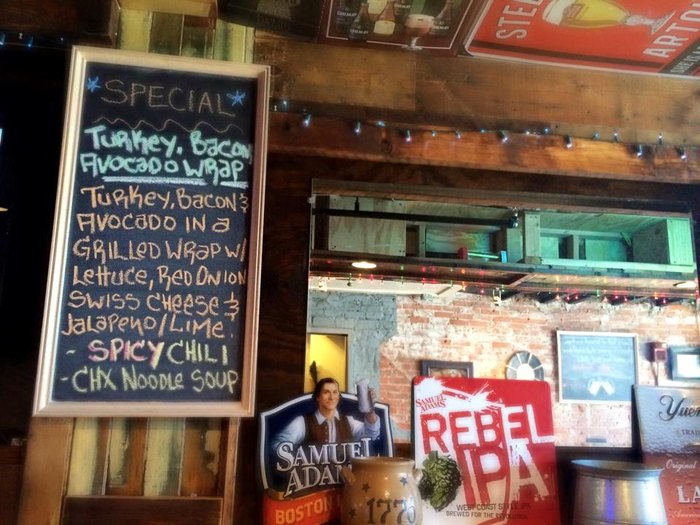 SPECIAL
TURKEY, BACON,
AVOCADO WRAP
TURKEY, BACON &
AVOCADO IN A
GRILLED WRAP W/
LETTUCE, RED ONION
SWISS CHEESE &
JALAPENO/LIME
- SPICY CHILI
- CHX NOODLE SOUP
STEL
ARTOI
SAMUEL
ADAMS
BOSTON
1776
SAMUEL
ADAMS
REBEL
IPA
WEST COAST STYLE IPA
BREWED FOR THE REVOLUTION
Yuen
TRAD
Original
LA